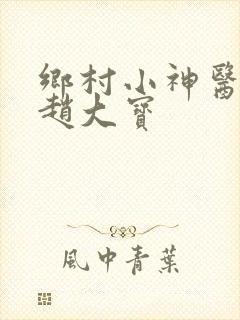 鄉村小神醫
趙大寶
風中青葉